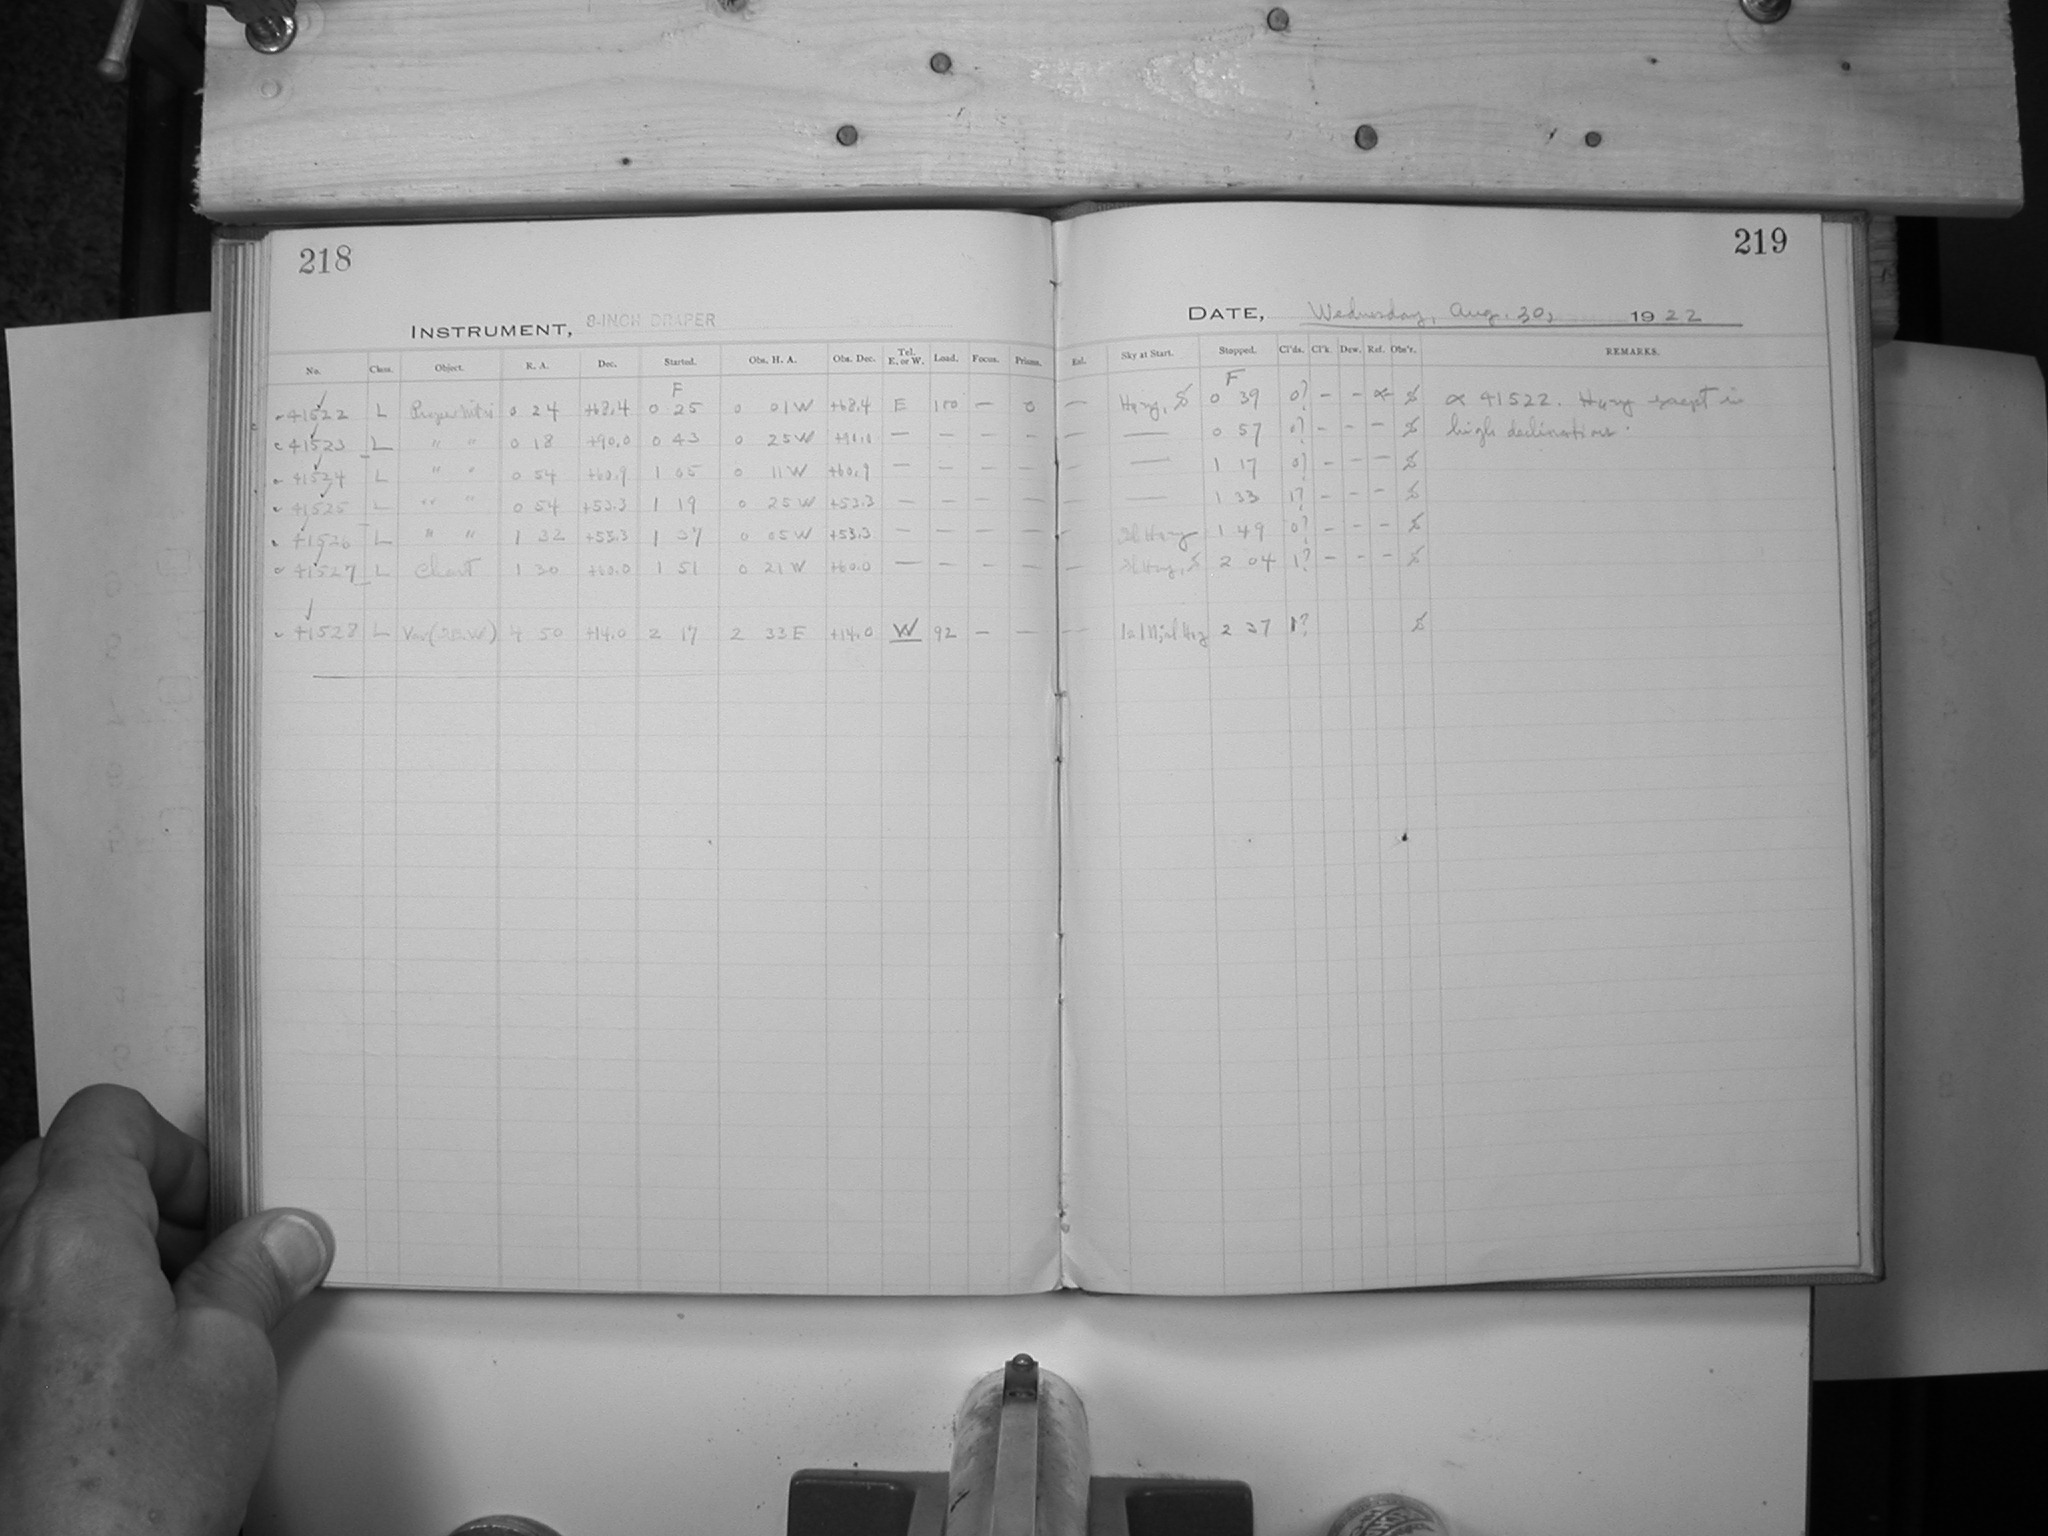 218
INSTRUMENT, 8-INCH DRAPER
No. Class. Object. R. A. Dec. Started. Obs. H. A. Obs. Dec. Tel. E. or W. Load. Focus. Prisms.
F
41522 L 0 24 +68.4 0 25 0 01 W +68.4 E 100 — 0
41523 L " " 0 18 +90.0 0 43 0 25 W — — — —
41524 L " " 0 54 +60.9 1 05 0 11 W +60.9 — — — —
41525 L " " 0 54 +53.3 1 19 0 25 W +53.3 — — — —
41526 L " " 1 32 +53.3 1 37 0 05 W +53.3 — — — —
41527 L Chart 1 30 +60.0 1 51 0 21 W +60.0 — — — —
41528 L Var 4 50 +14.0 2 17 2 33 E +14.0 W 92 — —
219
DATE, Wednesday, Aug. 30, 1922
Enl. Sky at Start. Stopped. Cl'ds. Cl'k. Dew. Ref. Obs'r. REMARKS.
F
— Hazy, 0 39 0? – – ∝ ∝ 41522. Hazy except in
— — 0 57 0? – – – high declinations.
— — 1 17 0? – – –
— — 1 33 1? – – –
— Sl Hazy 1 49 0? – – –
— Sl Hazy, 2 04 1? – – –
— Hazy 2 37 1?